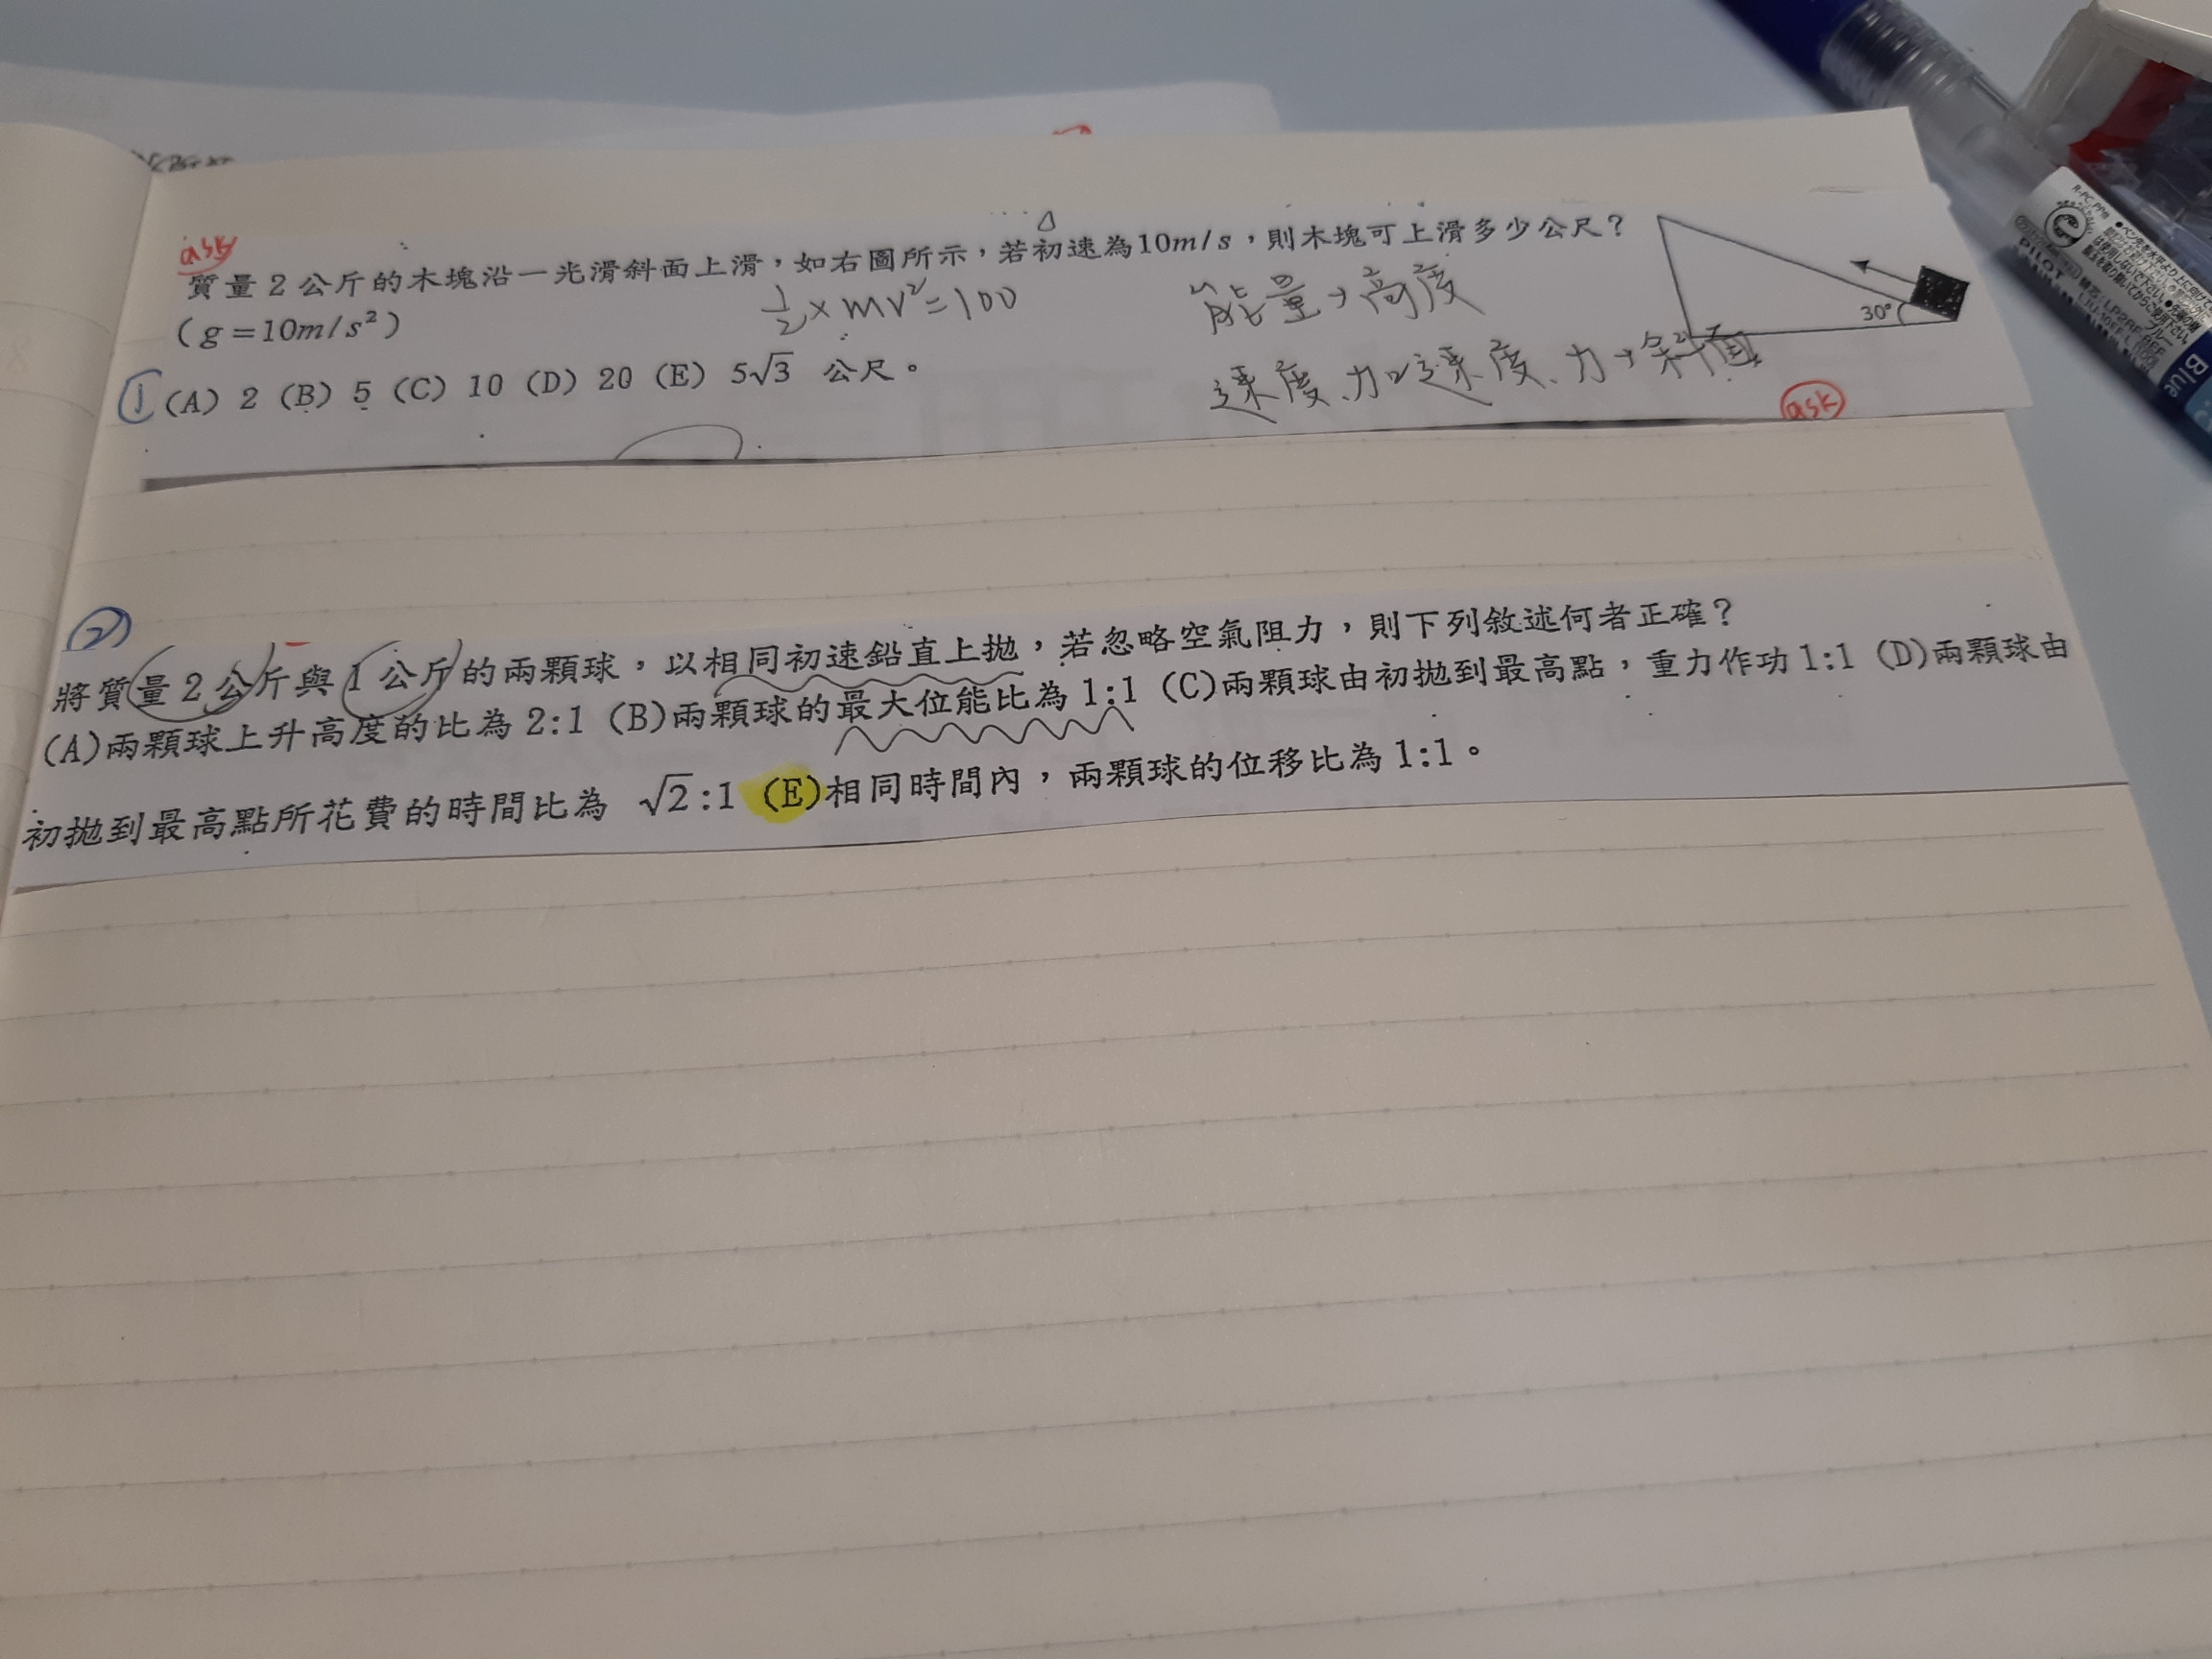 ask
質量 2 公斤的木塊沿一光滑斜面上滑，如右圖所示，若初速為10m/s，則木塊可上滑多少公尺？
(g=10m/s²)
½×mv²=100
能量→高度
30°
① (A) 2 (B) 5 (C) 10 (D) 20 (E) 5√3 公尺。
速度、加速度、力→斜面
ask
②
將質量 2 公斤與 1 公斤的兩顆球，以相同初速鉛直上拋，若忽略空氣阻力，則下列敘述何者正確？
(A)兩顆球上升高度的比為 2:1 (B)兩顆球的最大位能比為 1:1 (C)兩顆球由初拋到最高點，重力作功 1:1 (D)兩顆球由
初拋到最高點所花費的時間比為 √2:1 (E)相同時間內，兩顆球的位移比為 1:1。
PILOT
Blue